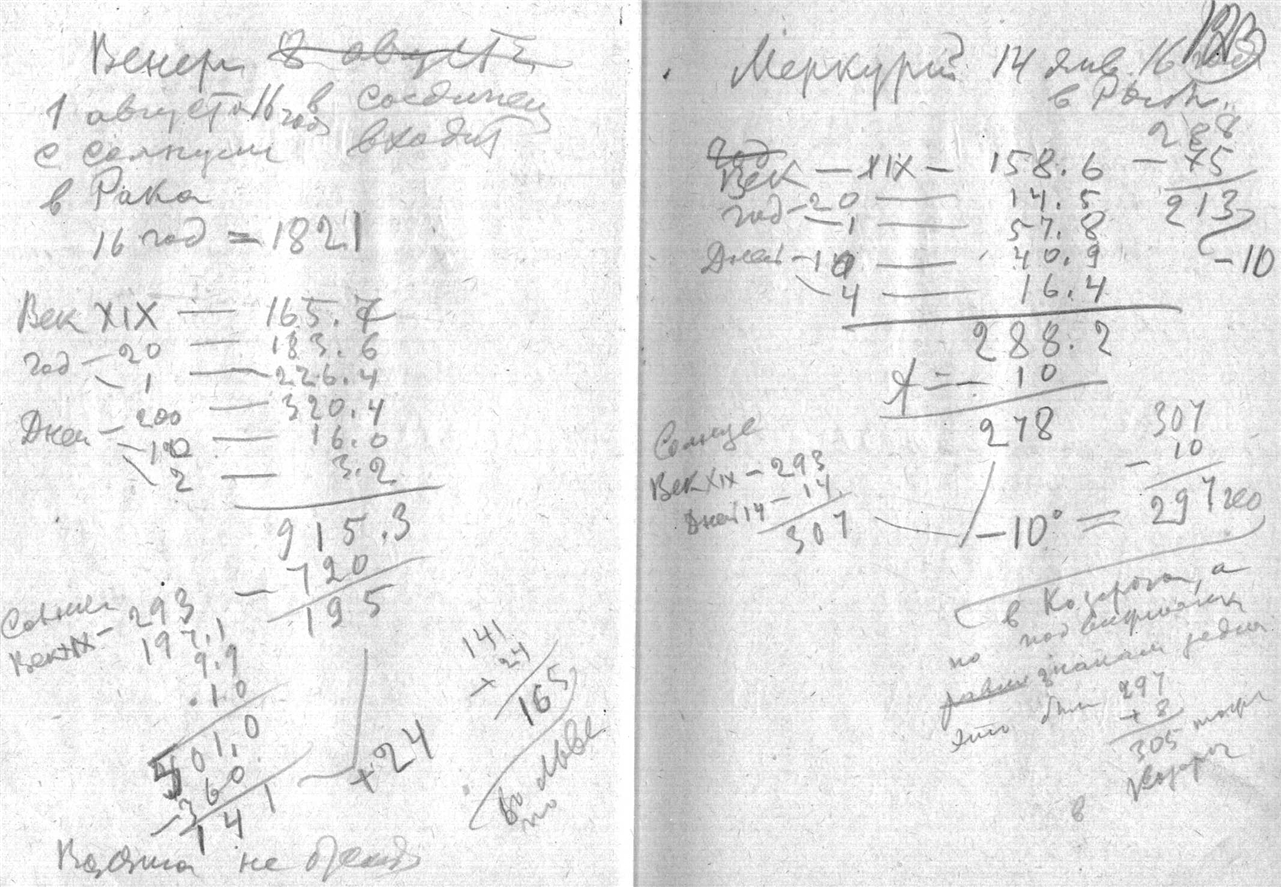 Венера 8 август
1 август 16 год в соединен
с солнцем входит
в Рака
16 год = 1821
Век XIX — 165.7
год — 20 — 183.6
1 — 226.4
Дней — 200 — 320.4
10 — 16.0
2 — 3.2
915.3
— 720
195
Солнце
Век XIX — 293
197.1
9.9
1.0
501.0
— 360
141
+24
141
+ 24
165
во Льве
не
Меркурий 14 янв. 16
в Рыбах
288
— 75
213
—10
год
Век — XIX — 158.6
год — 20 — 14.5
— 1 — 57.8
Дней — 10 — 40.9
4 — 16.4
288.2
— 10
278
Солнце
Век XIX — 293
Дней 14 — 14
307
—10° =
307
— 10
297 гео
в Козероге, а
по
знакам
это был 297
+ 8
305 тоже
в Козерог